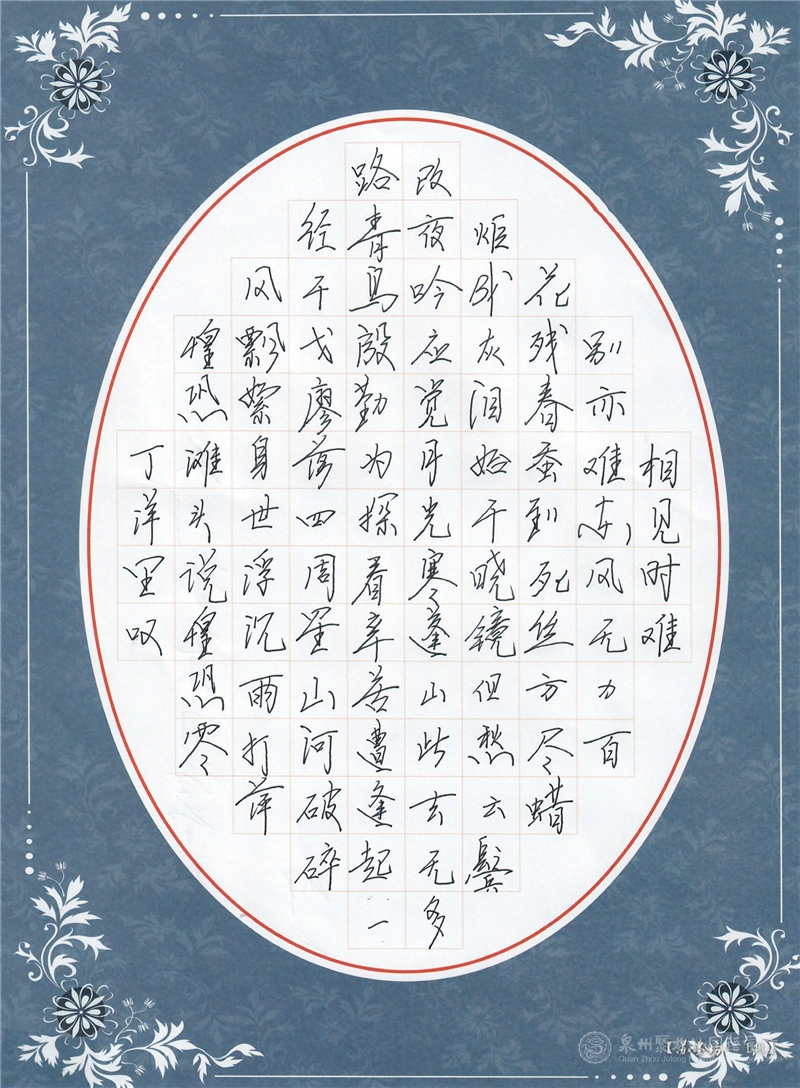 相见时难
别亦难东风无力百
花残春蚕到死丝方尽蜡
炬成灰泪始干晓镜但愁云鬓
改夜吟应觉月光寒蓬山此去无多
路青鸟殷勤为探看辛苦遭逢起一
经干戈廖落四周星山河破碎
风飘絮身世浮沉雨打萍
惶恐滩头说惶恐零
丁洋里叹
泉州聚龙
Quan Zhou Julong